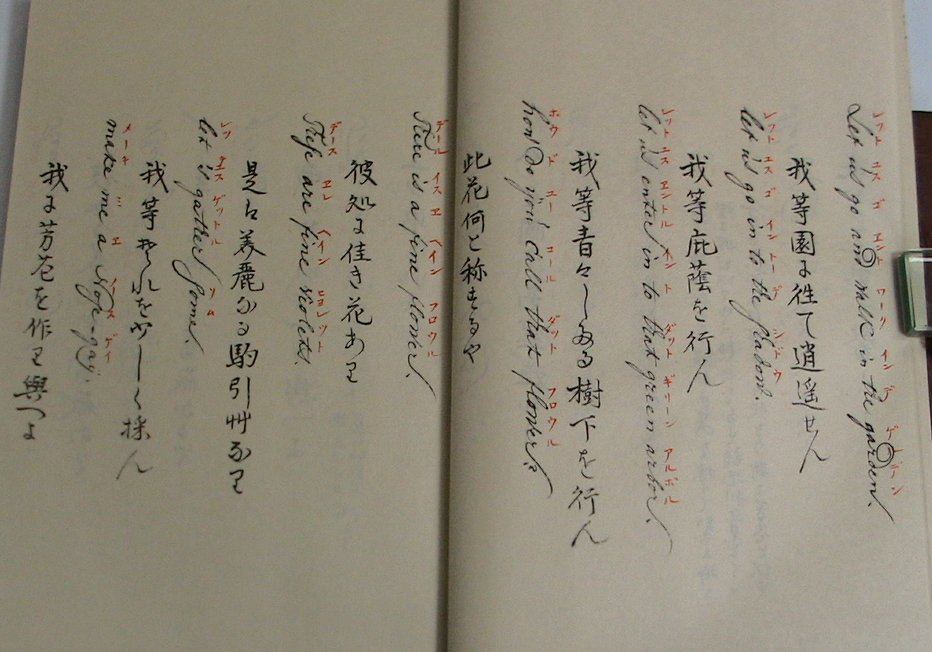 レット エス ゴ エント ワーク イン デ ゲーデン
Let us go and walk in the garden.
我等園に往て逍遥せん
レット エス ゴ イントー デ シャドウ
let us go in to the shadow.
我等庇蔭を行ん
レット エス エントル イント ダット ギリーン アルボル
let us enter in to that green arbor.
我等青々したる樹下を行ん
ホウ ド ユー コール ダット フロウル
how do you Call that flower?
此花何と称するや
デール イス エ ヘイン フロウル
There is a fine flower.
彼処に佳き花あり
デース エレ ヘイン ヒヨレット
These are fine violets.
是は美麗なる駒引艸なり
レット エス ゲットル ソム
let us gather some.
我等それを少しく採ん
メーキ ミ エ ノース ゲイ
make me a Nose-gay.
我に芳花を作り與へよ